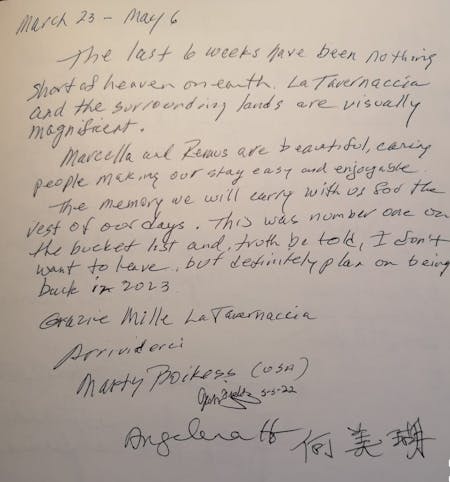 March 23 - May 6
The last 6 weeks have been nothing
short of heaven on earth. LaTavernaccia
and the surrounding lands are visually
magnificent.
Marcella and Remus are beautiful, caring
people making our stay easy and enjoyable.
The memory we will carry with us for the
rest of our days. This was number one on
the bucket list and, truth be told, I don't
want to leave, but definitely plan on being
back in 2023.
Grazie Mille LaTavernaccia
Arrividerci
Marty Poikess (USA)
5-5-22
何美瑚